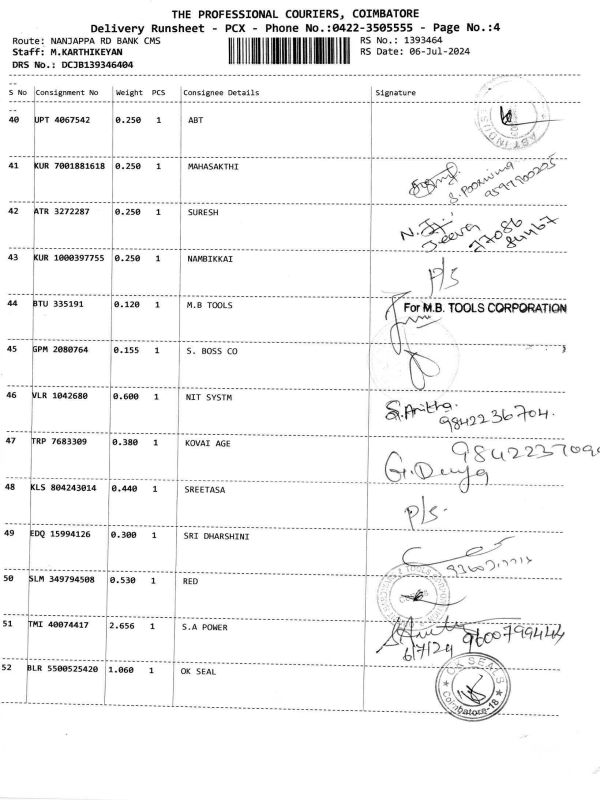 THE PROFESSIONAL COURIERS, COIMBATORE
Delivery Runsheet - PCX - Phone No.:0422-3505555 - Page No.:4
Route: NANJAPPA RD BANK CMS RS No.: 1393464
Staff: M.KARTHIKEYAN RS Date: 06-Jul-2024
DRS No.: DCJB139346404
S No Consignment No Weight PCS Consignee Details Signature
40 UPT 4067542 0.250 1 ABT
ABT INDUS
41 KUR 7001881618 0.250 1 MAHASAKTHI
S. Poornima
42 ATR 3272287 0.250 1 SURESH
N. Jeeva
77086
84467
43 KUR 1000397755 0.250 1 NAMBIKKAI P/s
44 BTU 335191 0.120 1 M.B TOOLS For M.B. TOOLS CORPORATION
45 GPM 2080764 0.155 1 S. BOSS CO
46 VLR 1042680 0.600 1 NIT SYSTM G.Anitha.
9842236704.
47 TRP 7683309 0.380 1 KOVAI AGE
G. Divya
48 KLS 804243014 0.440 1 SREETASA P/s.
49 EDQ 15994126 0.300 1 SRI DHARSHINI
50 SLM 349794508 0.530 1 RED
51 TMI 40074417 2.656 1 S.A POWER 9600799444
6/7/24
52 BLR 5500525420 1.060 1 OK SEAL
OK SEALS
Coimbatore-18